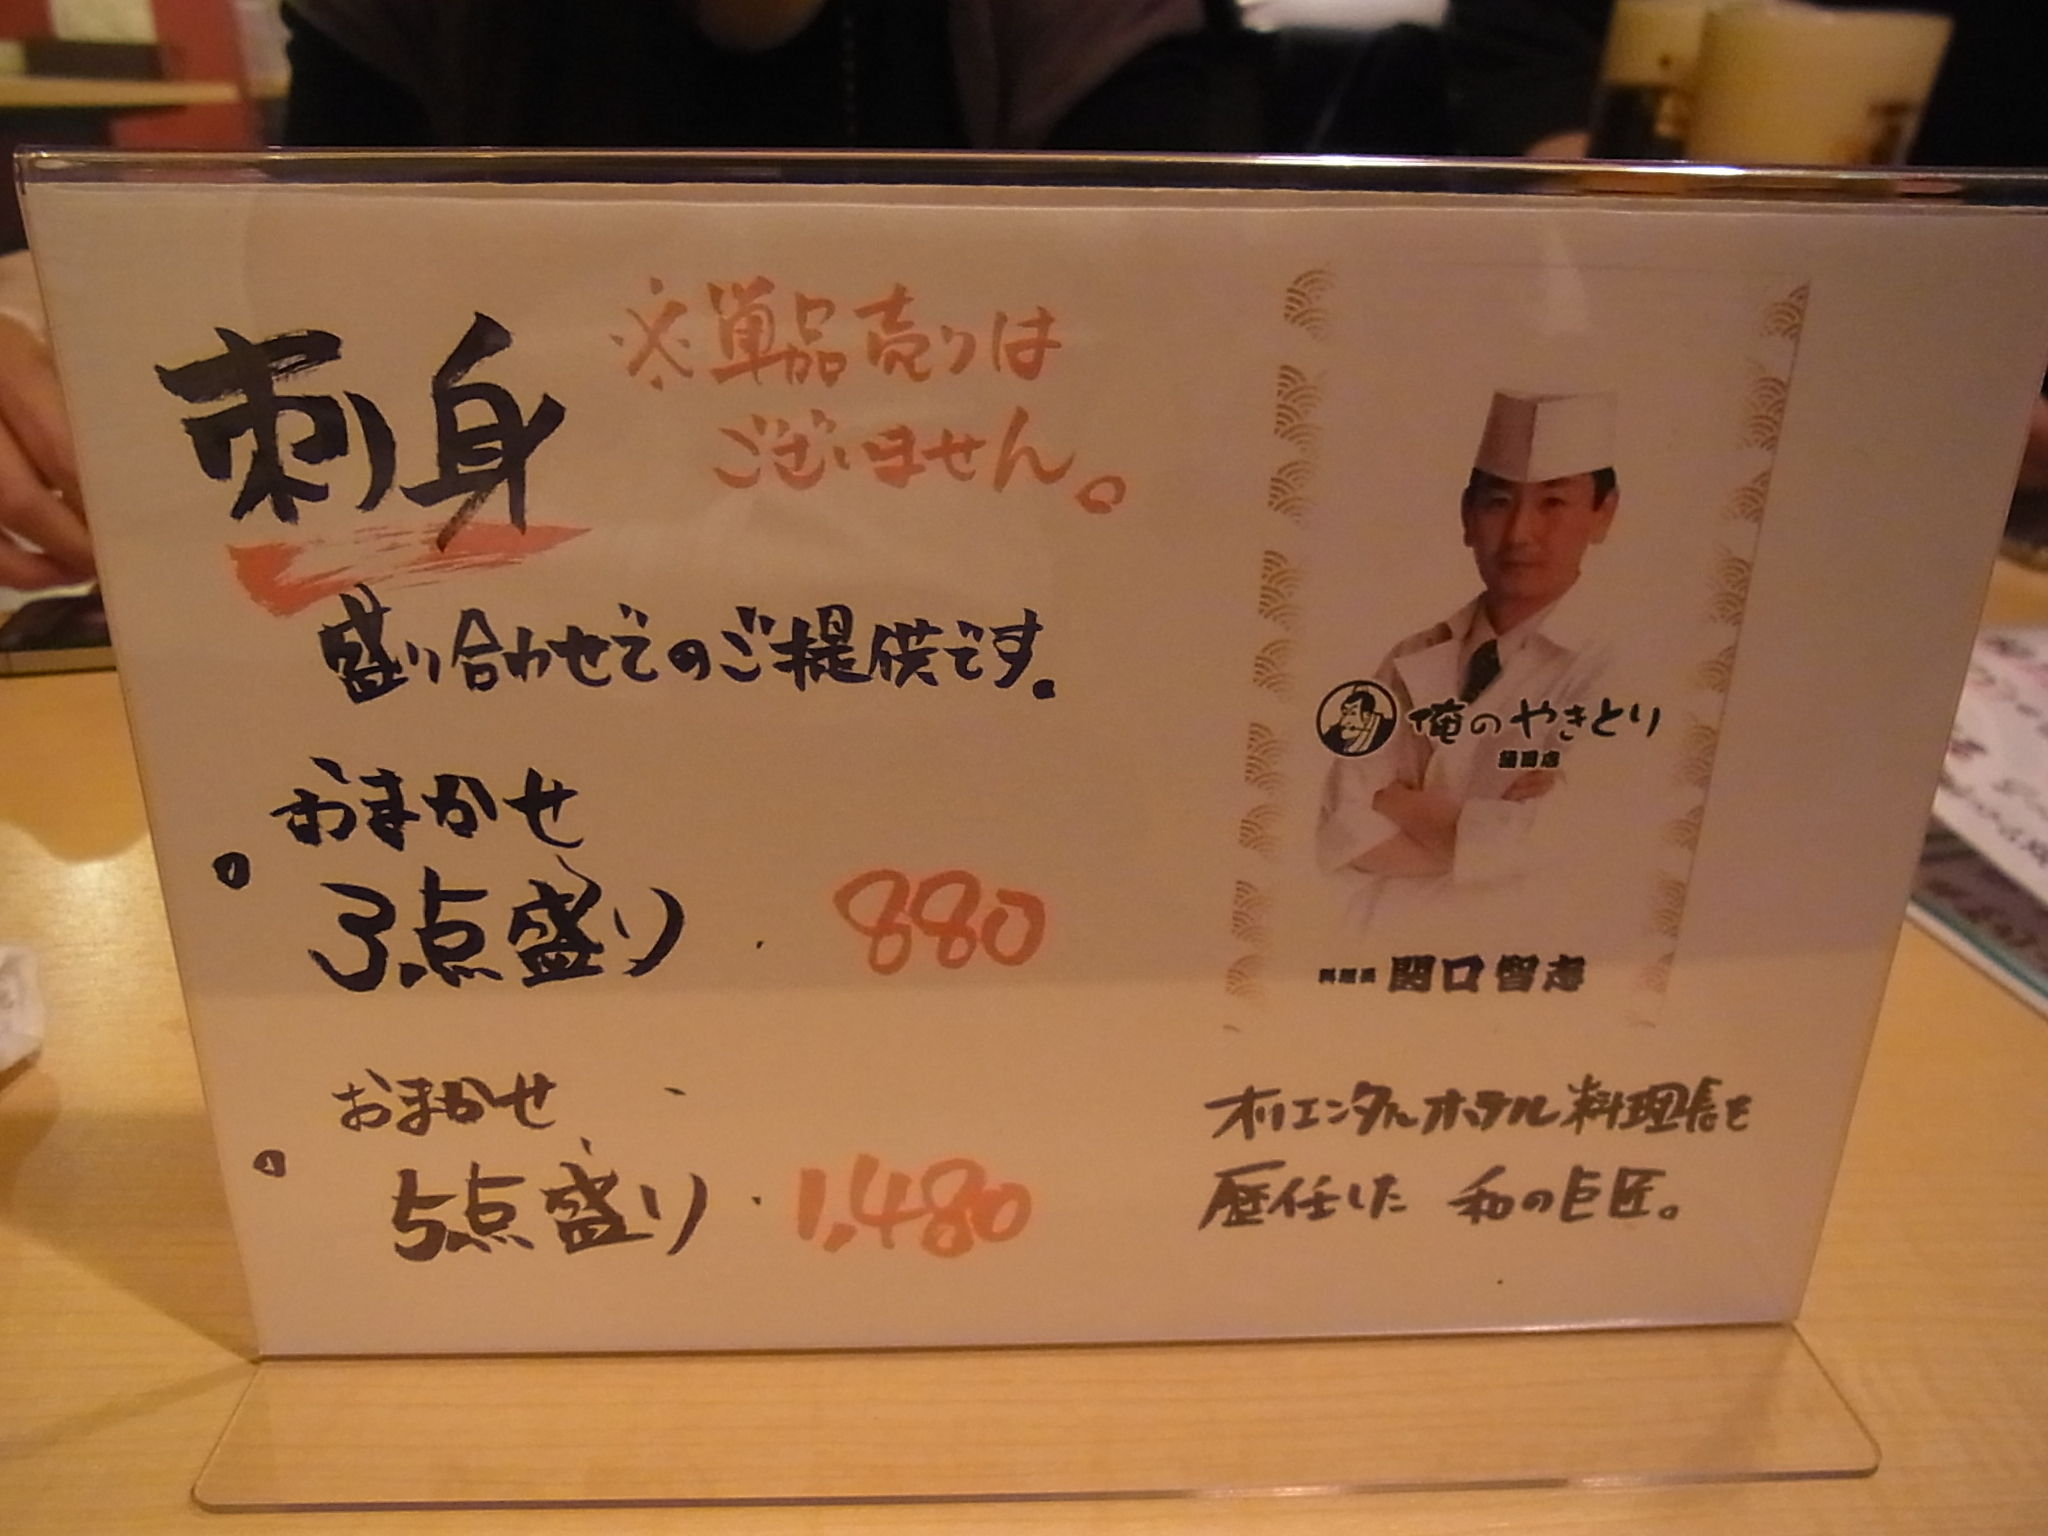 刺身
※単品売りは
ございません。
盛り合わせでのご提供です。
おまかせ
3点盛り 880
おまかせ
5点盛り 1,480
俺のやきとり
蒲田店
料理長 関口智志
オリエンタルホテル料理長を
歴任した 和の巨匠。